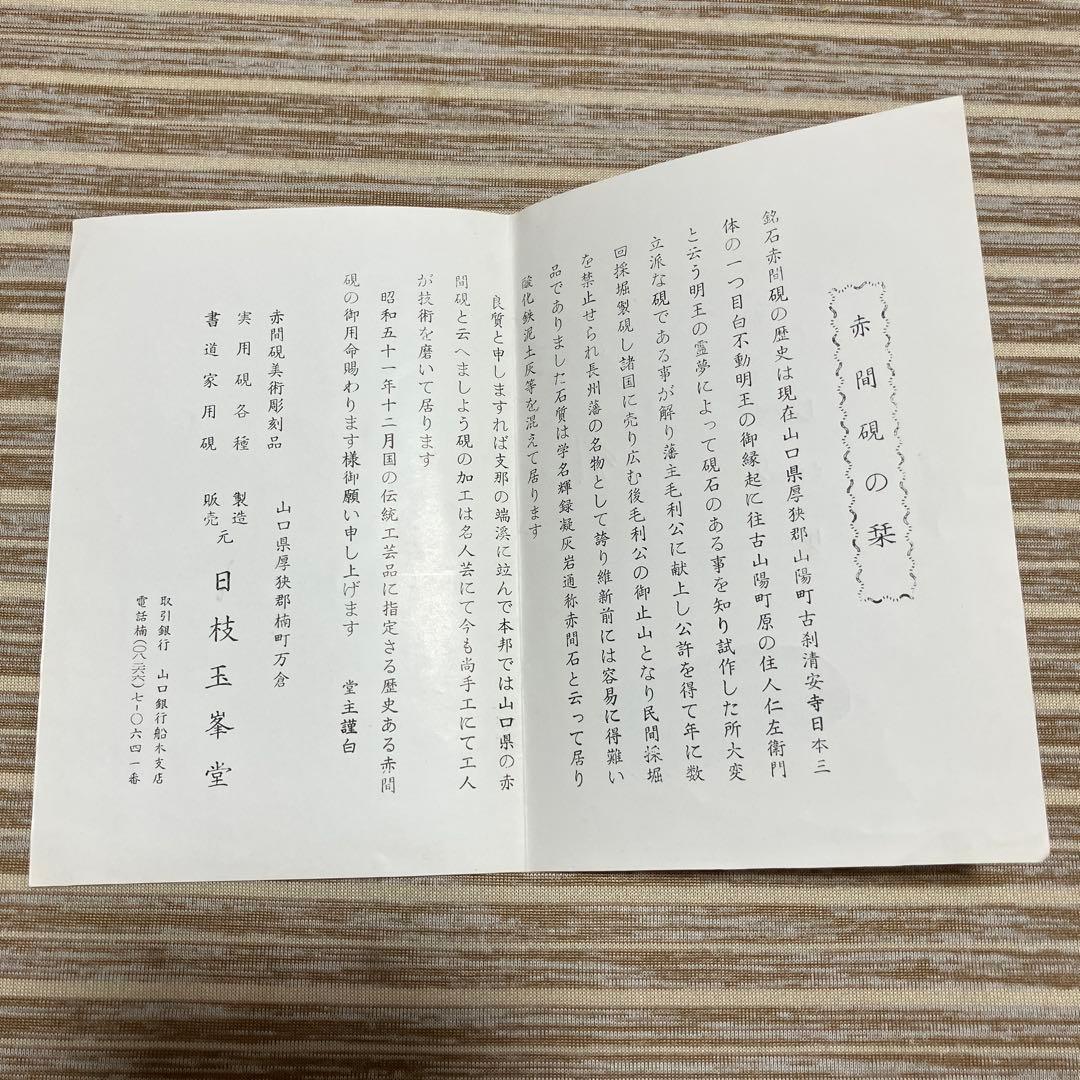 赤間硯の栞
銘石赤間硯の歴史は現在山口県厚狭郡山陽町古刹清安寺日本三
体の一つ目白不動明王の御縁起に往古山陽町原の住人仁左衛門
と云う明王の霊夢によって硯石のある事を知り試作した所大変
立派な硯である事が解り藩主毛利公に献上し公許を得て年に数
回採堀製硯し諸国に売り広む後毛利公の御止山となり民間採堀
を禁止せられ長州藩の名物として誇り維新前には容易に得難い
品でありました石質は学名輝録凝灰岩通称赤間石と云って居り
酸化鉄泥土灰等を混えて居ります
良質と申しますれば支那の端渓に竝んで本邦では山口県の赤
間硯と云へましよう硯の加工は名人芸にて今も尚手工にて工人
が技術を磨いて居ります
昭和五十一年十二月国の伝統工芸品に指定さる歴史ある赤間
硯の御用命賜わります様御願い申し上げます 堂主謹白
赤間硯美術彫刻品 山口県厚狭郡楠町万倉
実用硯各種 製造
書道家用硯 販売元 日枝玉峯堂
取引銀行 山口銀行船木支店
電話楠(〇八三六六)七-〇六四一番